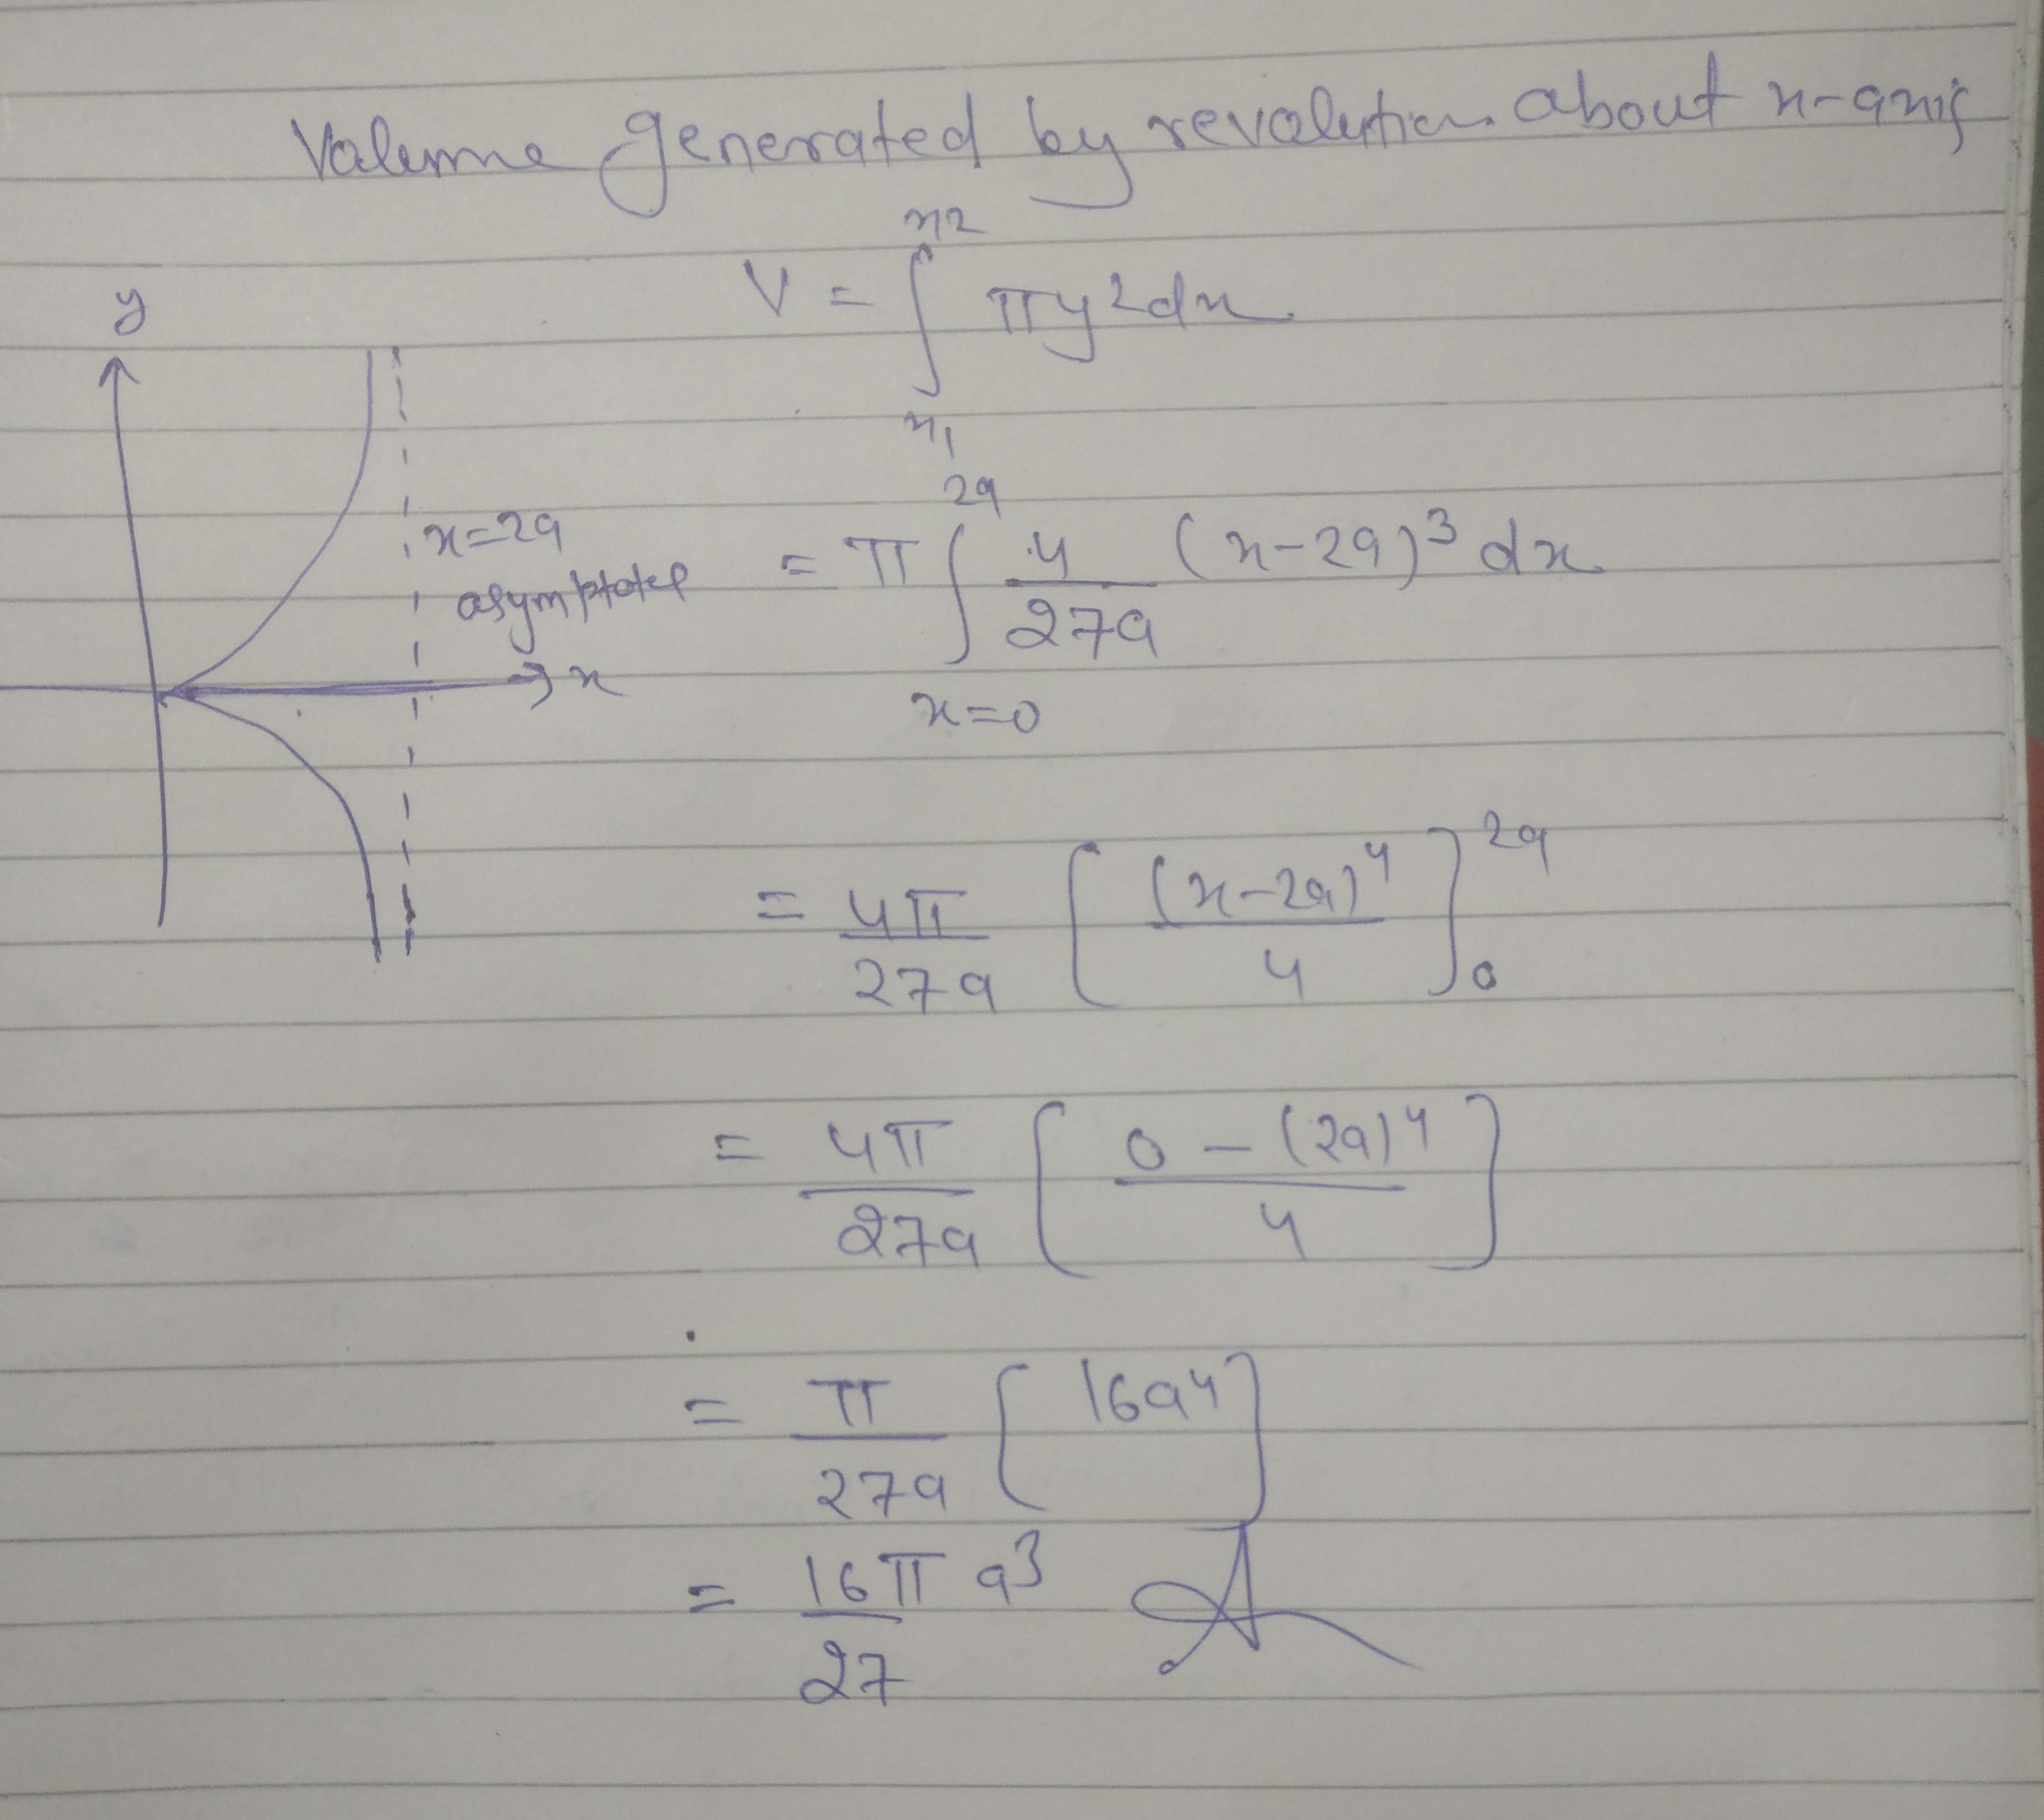 Volume generated by revolution about x-axis
V = ∫_{x1}^{x2} πy²dx
y
x=2a
asymptotes
x
= π ∫_{x=0}^{2a} 4/27a (x-2a)³ dx
= 4π/27a [ (x-2a)⁴/4 ]_0^{2a}
= 4π/27a [ 0 - (2a)⁴/4 ]
= π/27a [ 16a⁴ ]
= 16π/27 a³